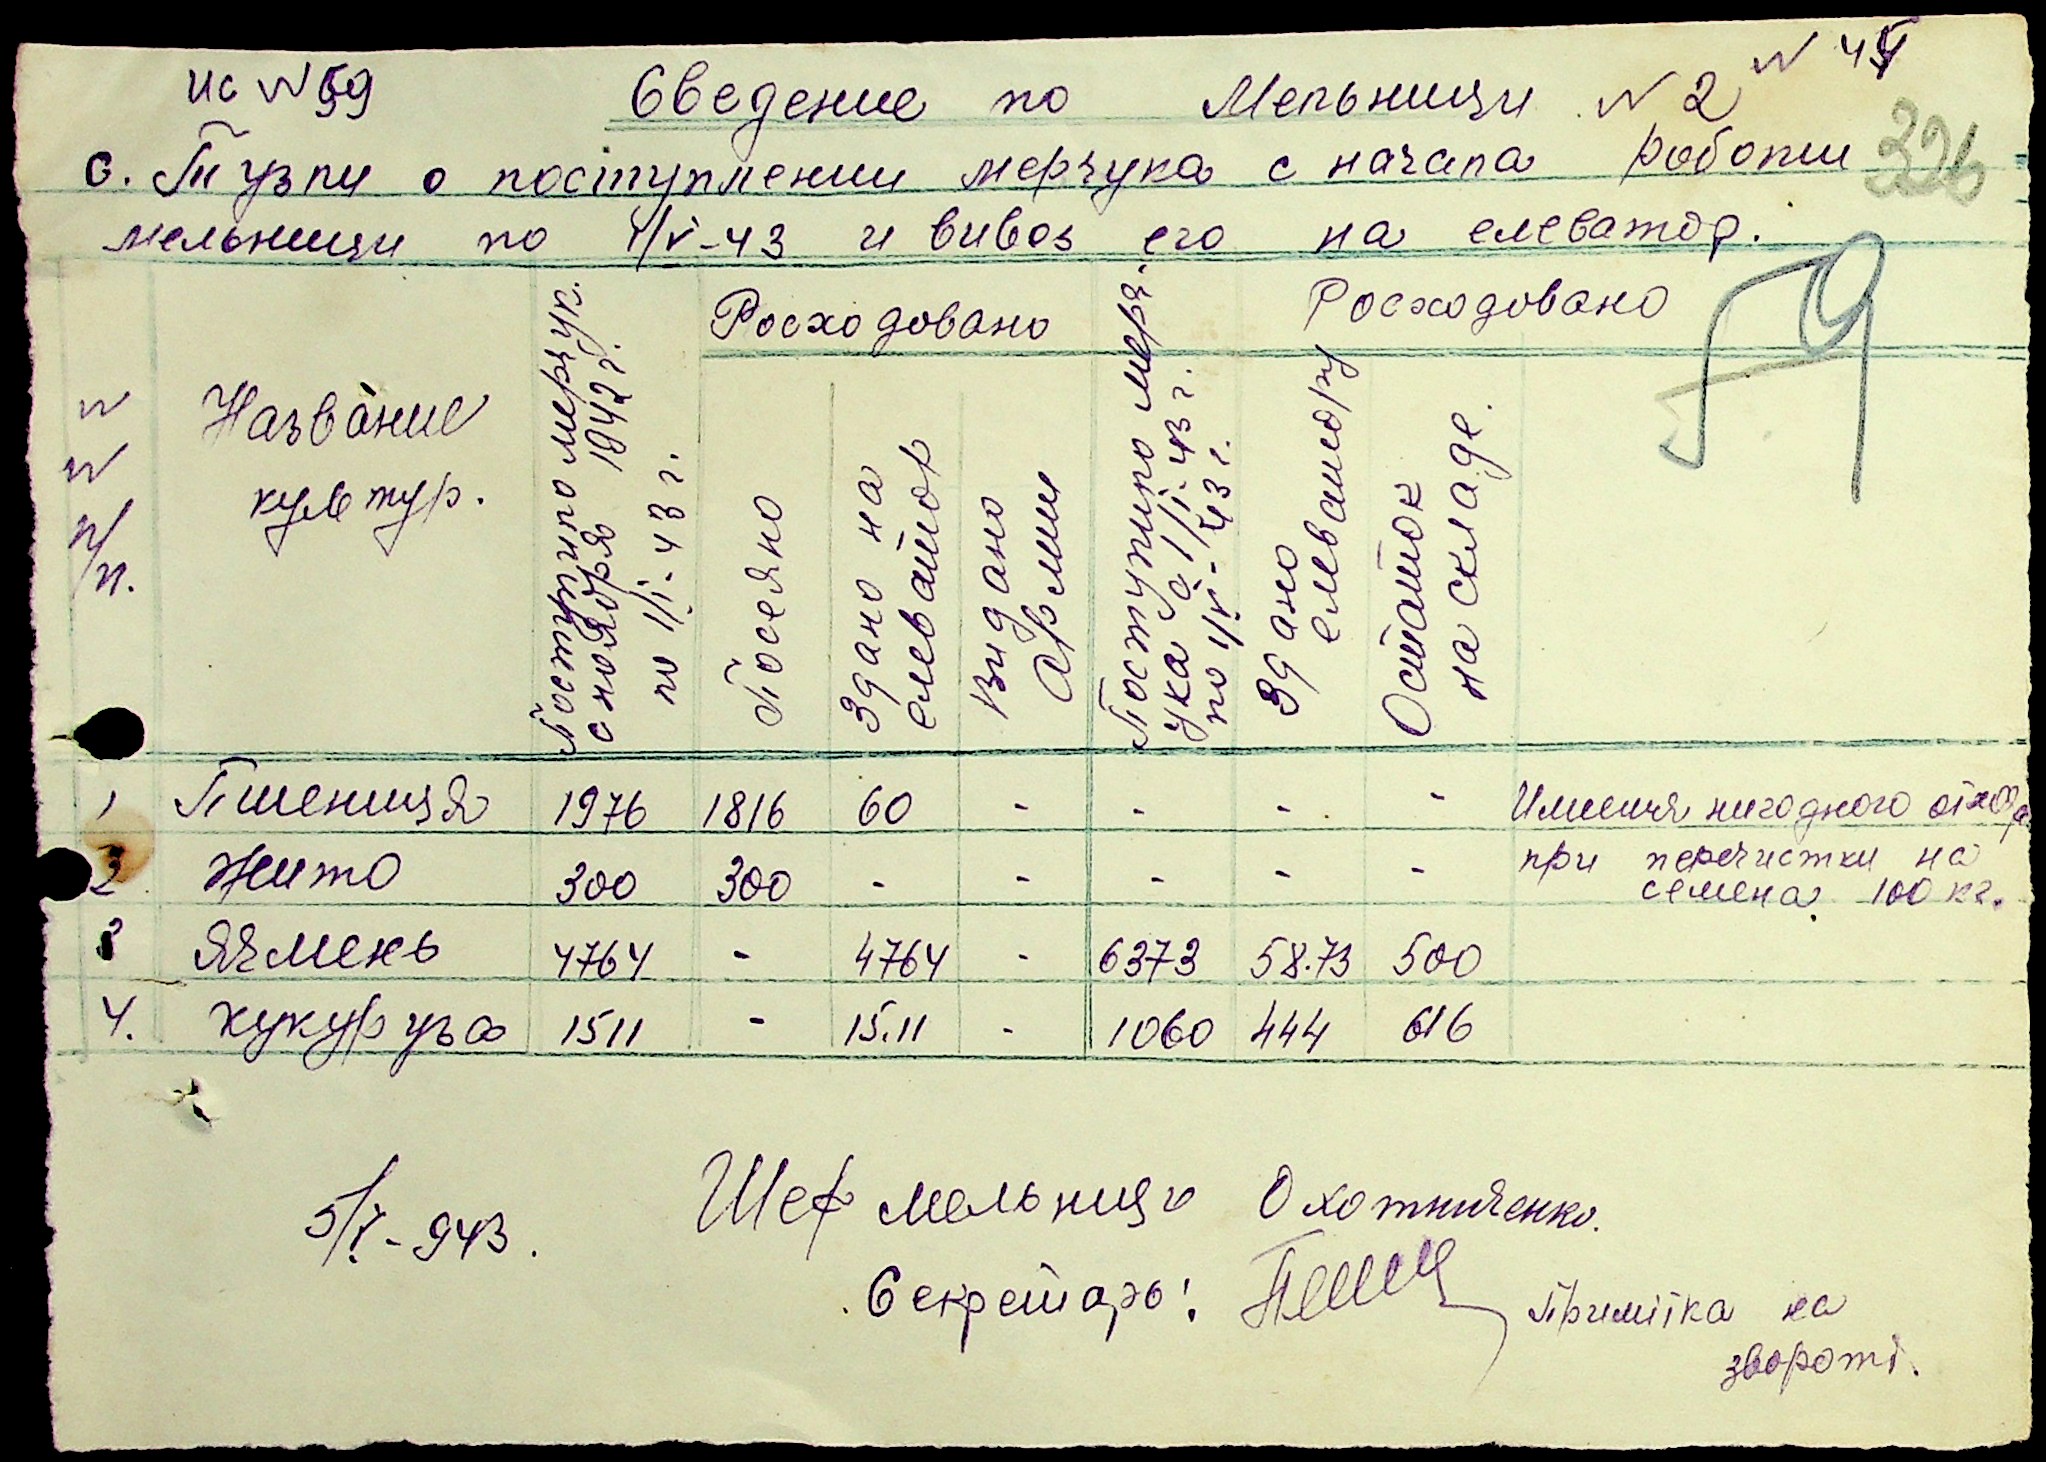 ис № 59
№ 45
Сведение по Мельници № 2
326
с. Тузли о поступлении мерчука с начала роботи
мельници по 4/V-43 и вивоз его на елеватор.
59
№ № п/п.
Название культур.
Поступило мерчук. с ноября 1942 г. по 1/I-43 г.
Росходовано
Посеяно
Здано на елеватор
Видано Армии
Поступило мерч- ука с 1/I-43 г. по 4/V-43 г.
Росходовано
Здано елеватору
Остаток на складе.
1 Пшениця 1976 1816 60 - - - - Имеится нигодного отхода
при перечистки на
семена 100 кг.
2 Жито 300 300 - - - - -
3 Ячмень 4764 - 4764 - 6373 58.73 500
4. Кукуруза 1511 - 15.11 - 1060 444 616
5/V-943.
Шеф мельници Охотниченко.
Секретарь:
Примітка на
звороті.